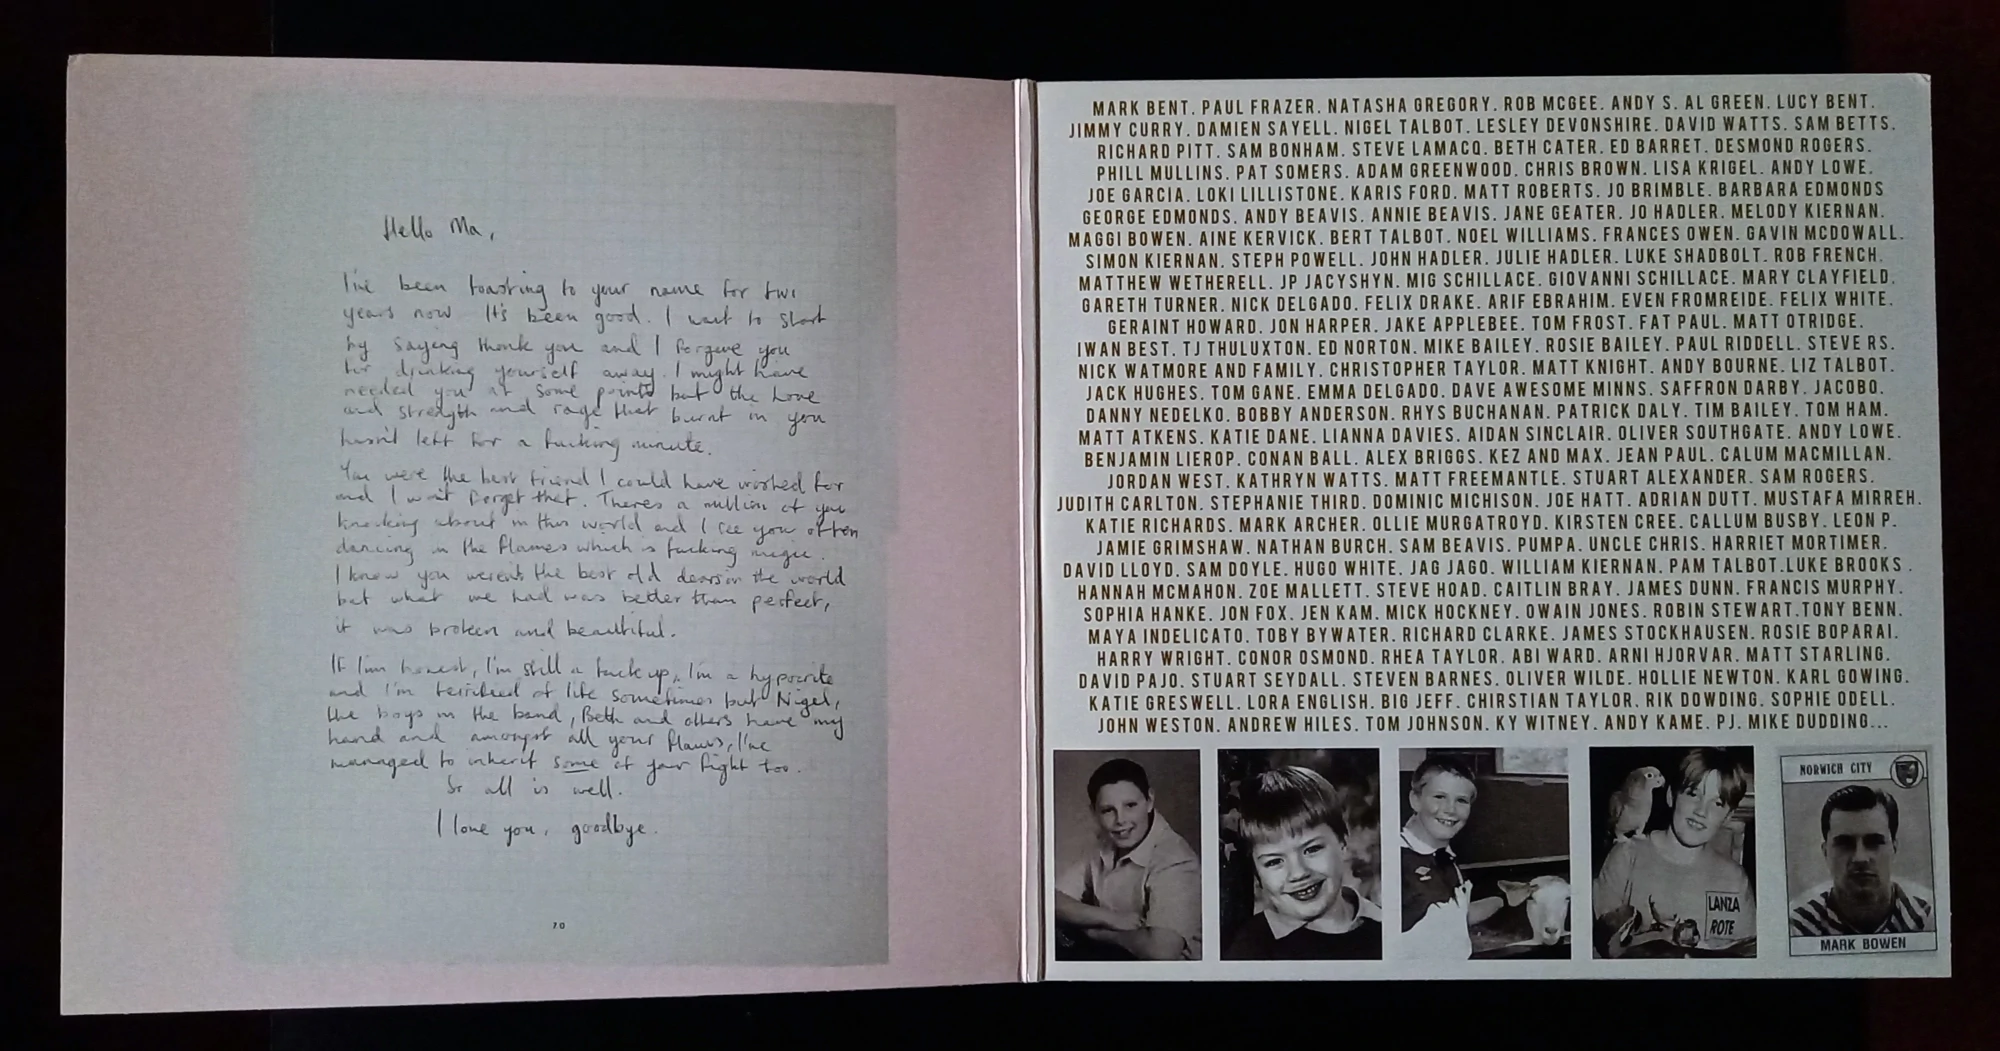 Hello Ma,
I've been toasting to your name for two
years now. It's been good. I want to start
by saying thank you and I forgive you
for drinking yourself away. I might have
needed you at some points but the love
and strength and rage that burnt in you
hasn't left for a fucking minute.
You were the best friend I could have wished for
and I won't forget that. Theres a million of you
knocking about in this world and I see you often
dancing in the flames which is fucking magic.
I know you weren't the best old dears in the world
but what we had was better than perfect,
it was broken and beautiful.
If I'm honest, I'm still a fuck up, I'm a hypocrite
and I'm terrified of life sometimes but Nigel,
the boys in the band, Beth and others have my
hand and amongst all your flaws, I've
managed to inherit some of your fight too.
So all is well.
I love you, goodbye.
70
MARK BENT. PAUL FRAZER. NATASHA GREGORY. ROB MCGEE. ANDY S. AL GREEN. LUCY BENT.
JIMMY CURRY. DAMIEN SAYELL. NIGEL TALBOT. LESLEY DEVONSHIRE. DAVID WATTS. SAM BETTS.
RICHARD PITT. SAM BONHAM. STEVE LAMACQ. BETH CATER. ED BARRET. DESMOND ROGERS.
PHILL MULLINS. PAT SOMERS. ADAM GREENWOOD. CHRIS BROWN. LISA KRIGEL. ANDY LOWE.
JOE GARCIA. LOKI LILLISTONE. KARIS FORD. MATT ROBERTS. JO BRIMBLE. BARBARA EDMONDS
GEORGE EDMONDS. ANDY BEAVIS. ANNIE BEAVIS. JANE GEATER. JO HADLER. MELODY KIERNAN.
MAGGI BOWEN. AINE KERVICK. BERT TALBOT. NOEL WILLIAMS. FRANCES OWEN. GAVIN MCDOWALL.
SIMON KIERNAN. STEPH POWELL. JOHN HADLER. JULIE HADLER. LUKE SHADBOLT. ROB FRENCH.
MATTHEW WETHERELL. JP JACYSHYN. MIG SCHILLACE. GIOVANNI SCHILLACE. MARY CLAYFIELD.
GARETH TURNER. NICK DELGADO. FELIX DRAKE. ARIF EBRAHIM. EVEN FROMREIDE. FELIX WHITE.
GERAINT HOWARD. JON HARPER. JAKE APPLEBEE. TOM FROST. FAT PAUL. MATT OTRIDGE.
IWAN BEST. TJ THULUXTON. ED NORTON. MIKE BAILEY. ROSIE BAILEY. PAUL RIDDELL. STEVE RS.
NICK WATMORE AND FAMILY. CHRISTOPHER TAYLOR. MATT KNIGHT. ANDY BOURNE. LIZ TALBOT.
JACK HUGHES. TOM GANE. EMMA DELGADO. DAVE AWESOME MINNS. SAFFRON DARBY. JACOBO.
DANNY NEDELKO. BOBBY ANDERSON. RHYS BUCHANAN. PATRICK DALY. TIM BAILEY. TOM HAM.
MATT ATKENS. KATIE DANE. LIANNA DAVIES. AIDAN SINCLAIR. OLIVER SOUTHGATE. ANDY LOWE.
BENJAMIN LIEROP. CONAN BALL. ALEX BRIGGS. KEZ AND MAX. JEAN PAUL. CALUM MACMILLAN.
JORDAN WEST. KATHRYN WATTS. MATT FREEMANTLE. STUART ALEXANDER. SAM ROGERS.
JUDITH CARLTON. STEPHANIE THIRD. DOMINIC MICHISON. JOE HATT. ADRIAN DUTT. MUSTAFA MIRREH.
KATIE RICHARDS. MARK ARCHER. OLLIE MURGATROYD. KIRSTEN CREE. CALLUM BUSBY. LEON P.
JAMIE GRIMSHAW. NATHAN BURCH. SAM BEAVIS. PUMPA. UNCLE CHRIS. HARRIET MORTIMER.
DAVID LLOYD. SAM DOYLE. HUGO WHITE. JAG JAGO. WILLIAM KIERNAN. PAM TALBOT.LUKE BROOKS .
HANNAH MCMAHON. ZOE MALLETT. STEVE HOAD. CAITLIN BRAY. JAMES DUNN. FRANCIS MURPHY.
SOPHIA HANKE. JON FOX. JEN KAM. MICK HOCKNEY. OWAIN JONES. ROBIN STEWART.TONY BENN.
MAYA INDELICATO. TOBY BYWATER. RICHARD CLARKE. JAMES STOCKHAUSEN. ROSIE BOPARAI.
HARRY WRIGHT. CONOR OSMOND. RHEA TAYLOR. ABI WARD. ARNI HJORVAR. MATT STARLING.
DAVID PAJO. STUART SEYDALL. STEVEN BARNES. OLIVER WILDE. HOLLIE NEWTON. KARL GOWING.
KATIE GRESWELL. LORA ENGLISH. BIG JEFF. CHIRSTIAN TAYLOR. RIK DOWDING. SOPHIE ODELL.
JOHN WESTON. ANDREW HILES. TOM JOHNSON. KY WITNEY. ANDY KAME. PJ. MIKE DUDDING...
LANZA
ROTE
NORWICH CITY
MARK BOWEN